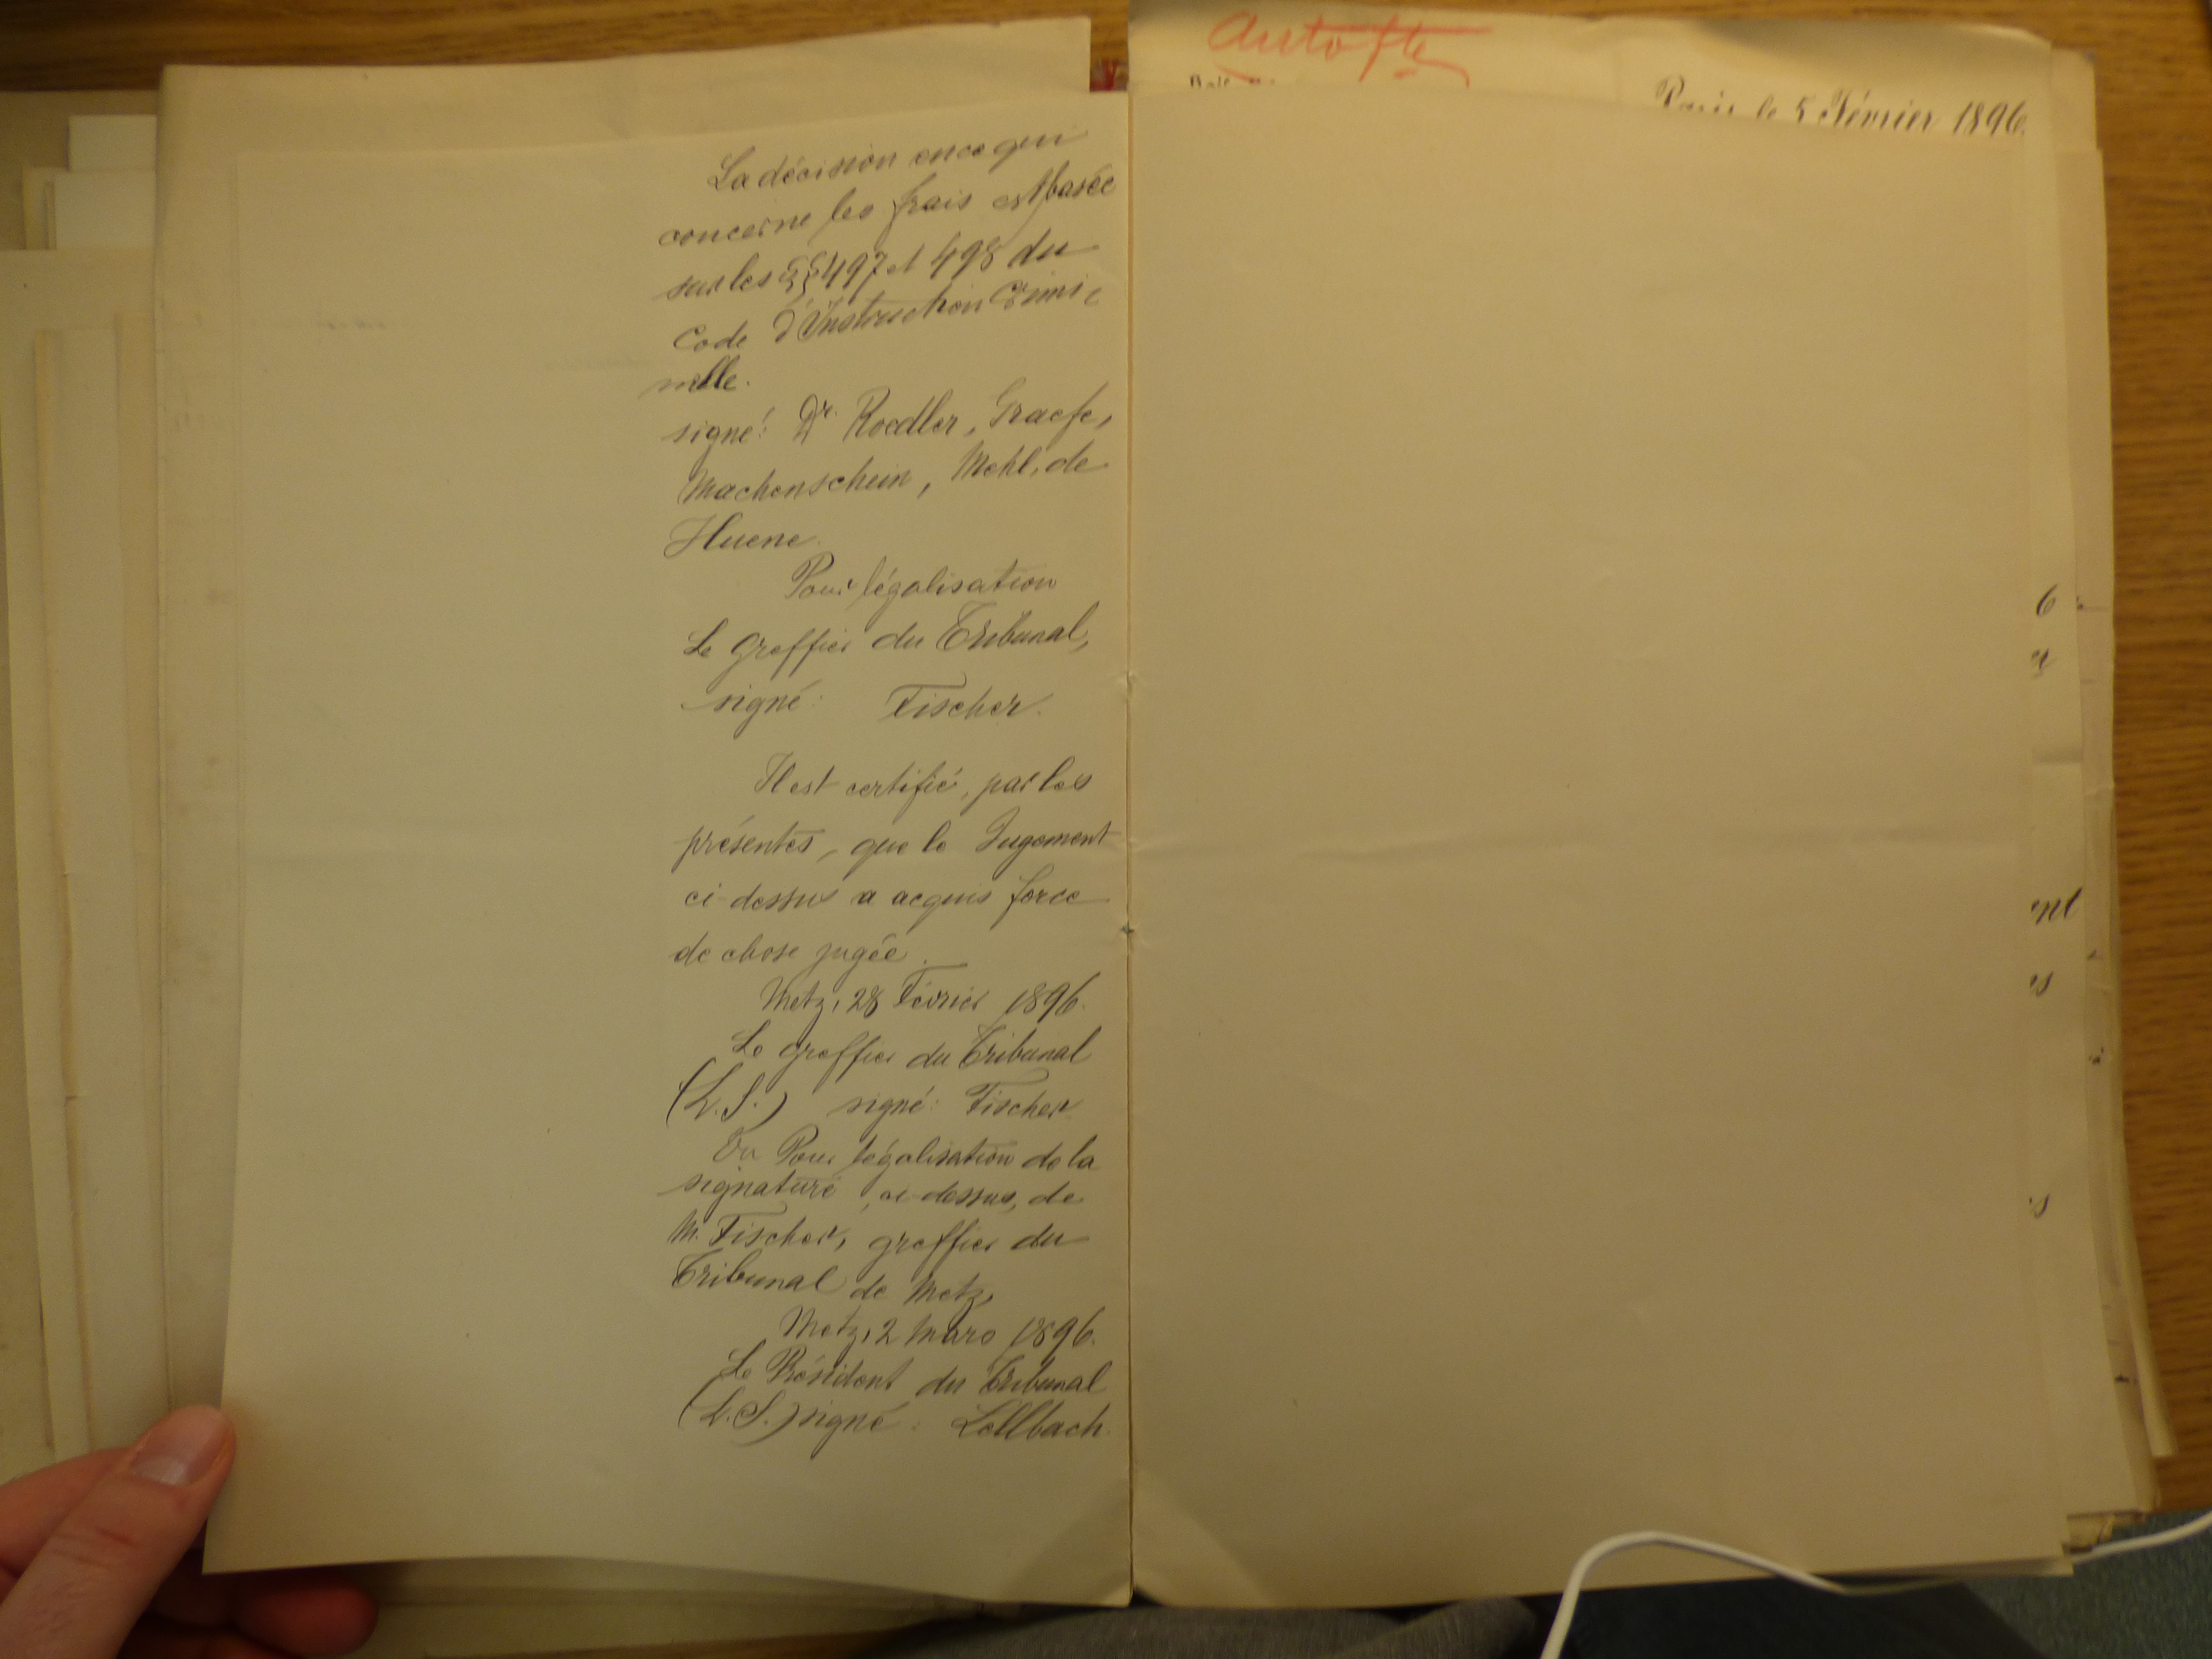 La décision en ce qui
concerne les frais est basée
sur les §§ 497 et 498 du
Code d'Instruction Crimi-
nelle.
signé: Dr. Roedler, Graefe,
Machenschein, Mehl, de
Huene.
Pour légalisation
Le greffier du Tribunal,
signé: Fischer.
Il est certifié, par les
présentes, que le Jugement
ci-dessus a acquis force
de chose jugée.
Metz, 28 Février 1896.
Le greffier du Tribunal
(L.S.) signé: Fischer
Vu Pour légalisation de la
signature, ci-dessus, de
M. Fischer, greffier du
Tribunal de Metz,
Metz, 2 Mars 1896.
Le Président du Tribunal
(L.S.) signé: Lellbach.
Paris le 5 Février 1896.